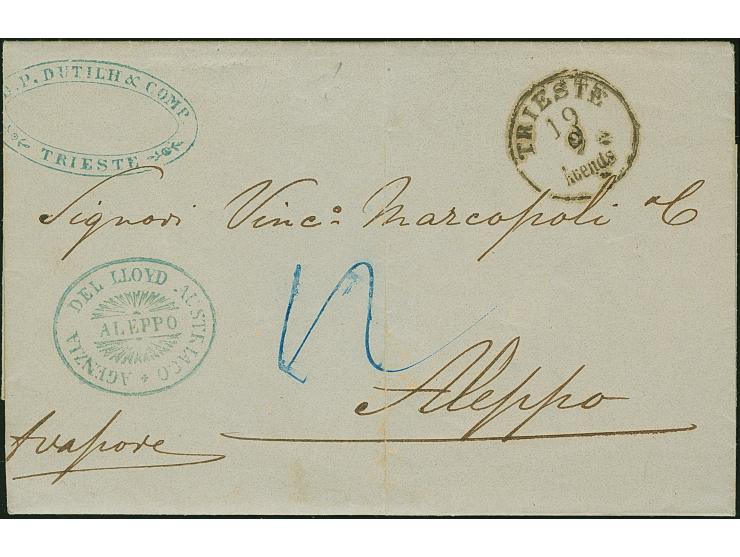 P. DUTILH & COMP.
TRIESTE
TRIESTE
19
Abends
Signori Vinc.o Marcopoli & C
AGENZIA DEL LLOYD AUSTRIACO
ALEPPO
Aleppo
Avapore